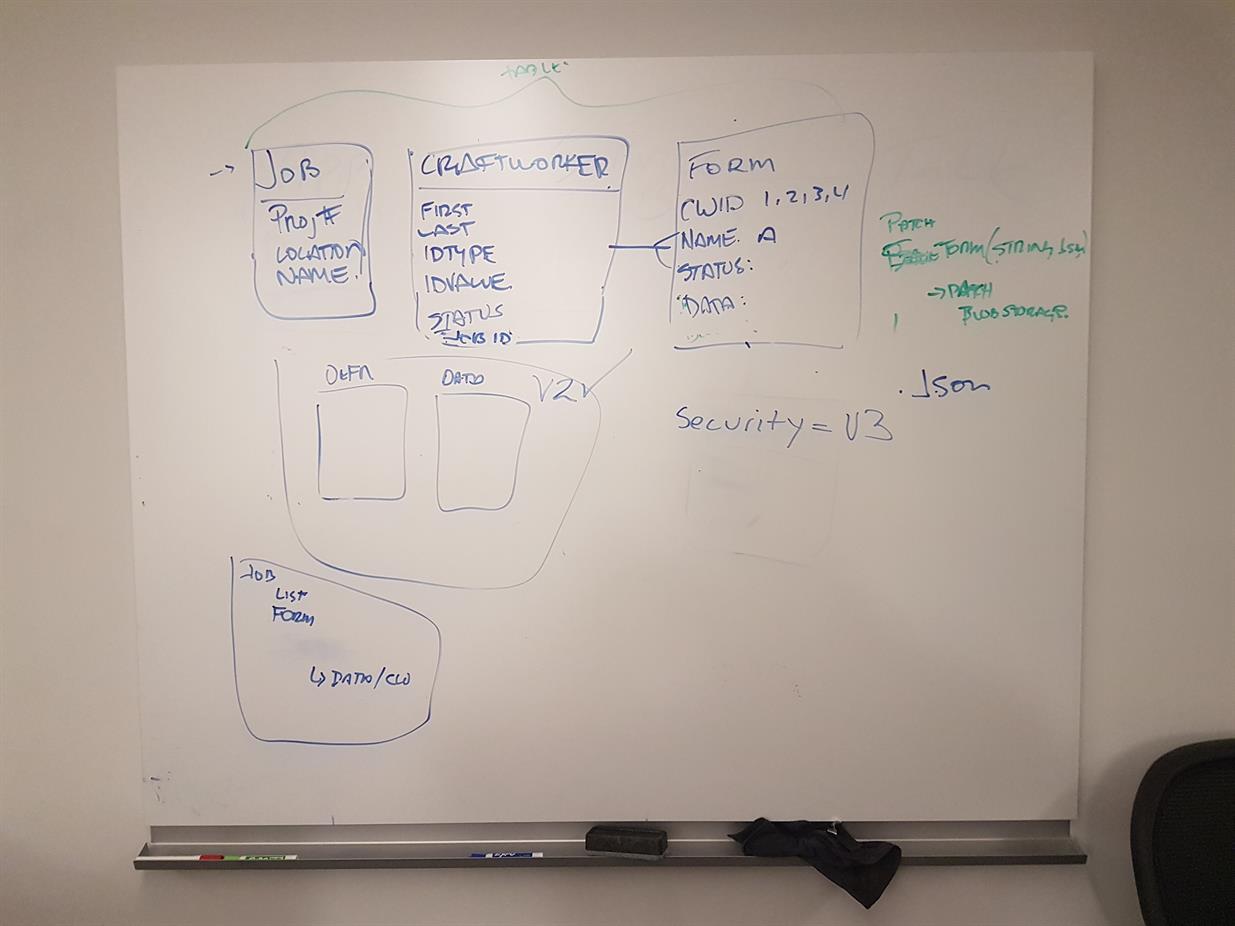 TABLE
→ JOB
Proj#
LOCATION
NAME
CRAFTWORKER
FIRST
LAST
IDTYPE
IDVALUE
STATUS
JOB ID
FORM
CWID 1,2,3,4
NAME. A
STATUS:
DATA:
PATCH
FORM(STRING, Json)
→ PATCH
BLOB STORAGE.
.Json
DEFN
DATA
V2
Security = V3
JOB
LIST
FORM
↳ DATA/CW